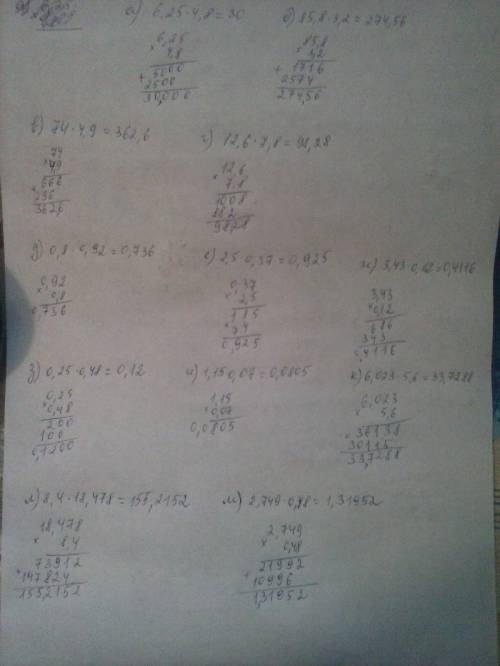 а) 6,25·4,8=30
6,25
× 4,8
+ 5000
2500
30,000
б) 85,8·3,2=274,56
85,8
× 3,2
+ 1716
2574
274,56
в) 74·4,9=362,6
74
× 49
+ 666
296
362,6
г) 12,6·7,8=98,28
12,6
× 7,8
1008
882
98,28
д) 0,8·0,92=0,736
0,92
× 0,8
0,736
е) 2,5·0,37=0,925
0,37
× 2,5
185
+ 74
0,925
ж) 3,43·0,12=0,4116
3,43
× 0,12
686
343
0,4116
з) 0,25·0,48=0,12
0,25
× 0,48
200
100
0,1200
и) 1,15·0,07=0,0805
1,15
× 0,07
0,0805
к) 6,023·5,6=33,7288
6,023
× 5,6
+ 36138
30115
33,7288
л) 8,4·18,478=155,2152
18,478
× 8,4
73912
+ 147824
155,2152
м) 2,749·0,48=1,31952
2,749
× 0,48
21992
+ 10996
1,31952